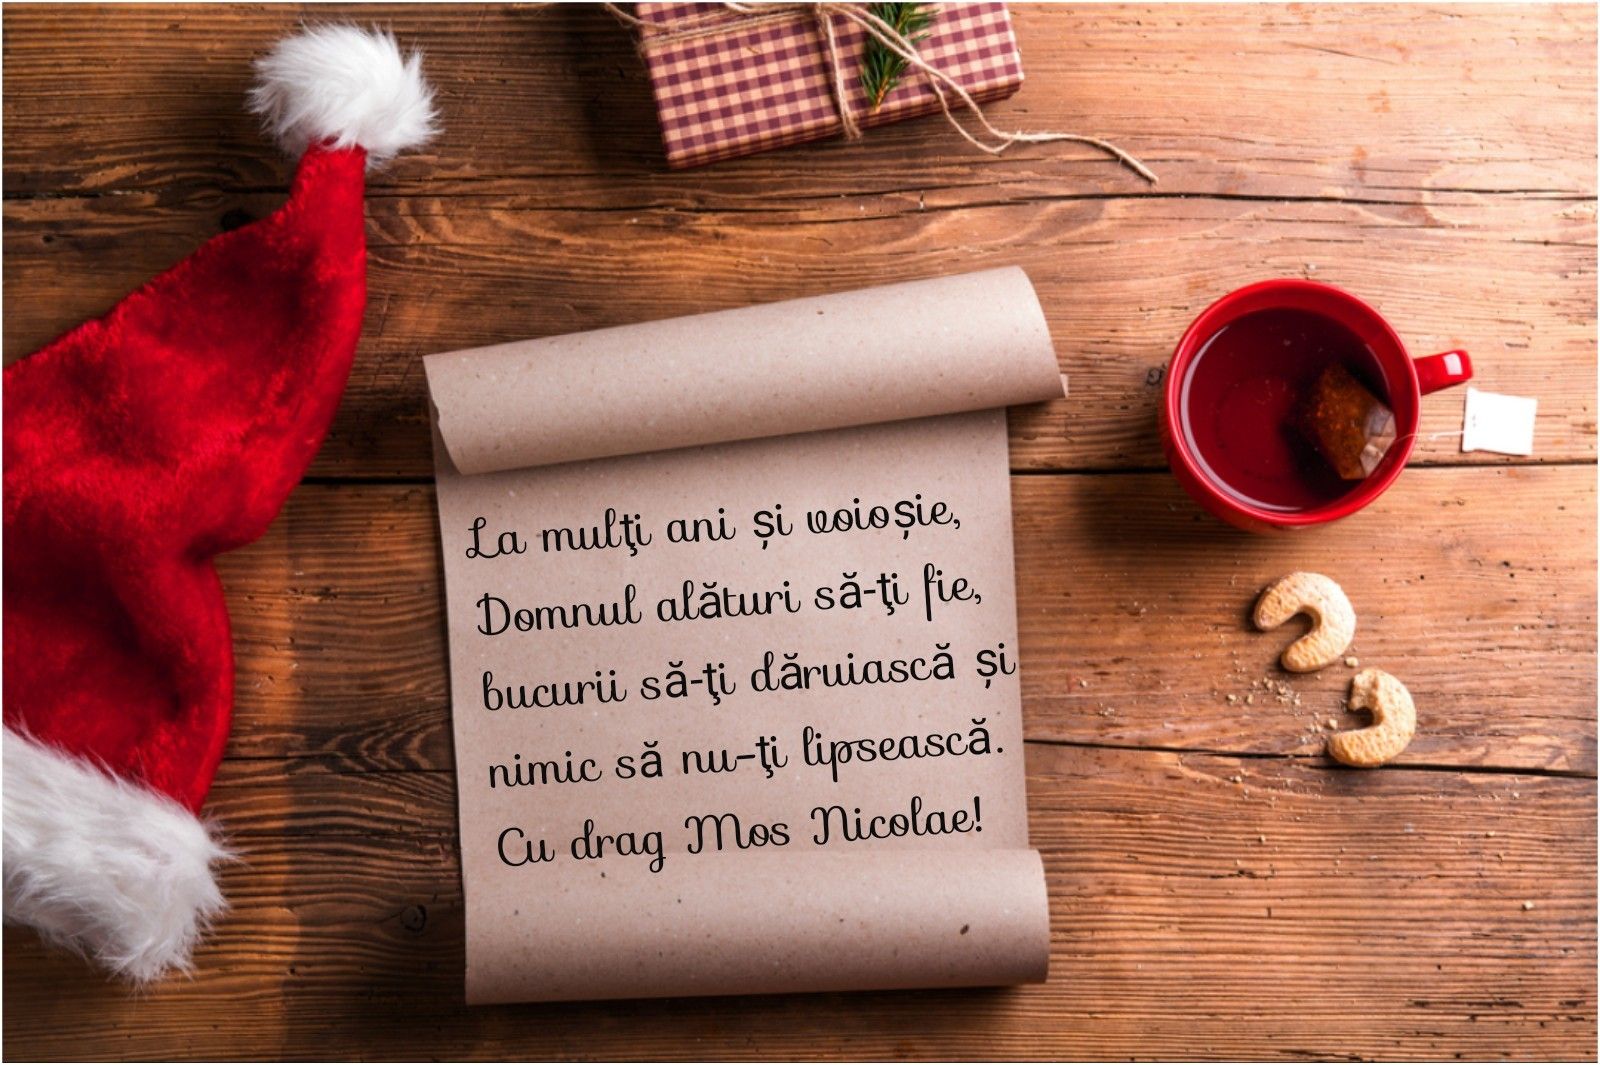 La mulţi ani și voioșie,
Domnul alături să-ţi fie,
bucurii să-ţi dăruiască și
nimic să nu-ţi lipsească.
Cu drag Mos Nicolae!